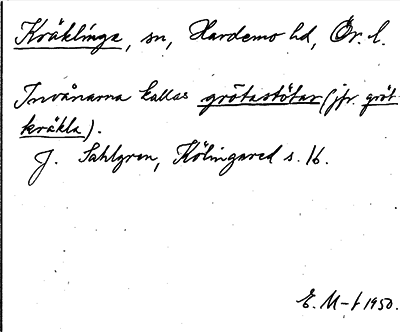 Kräklinge, sn, Hardemo hd, Ör. l.
Invånarna kallas grötastötar (jfr. gröt-
kräkla).
J. Sahlgren, Kölingared s. 16.
E. M-t 1950.